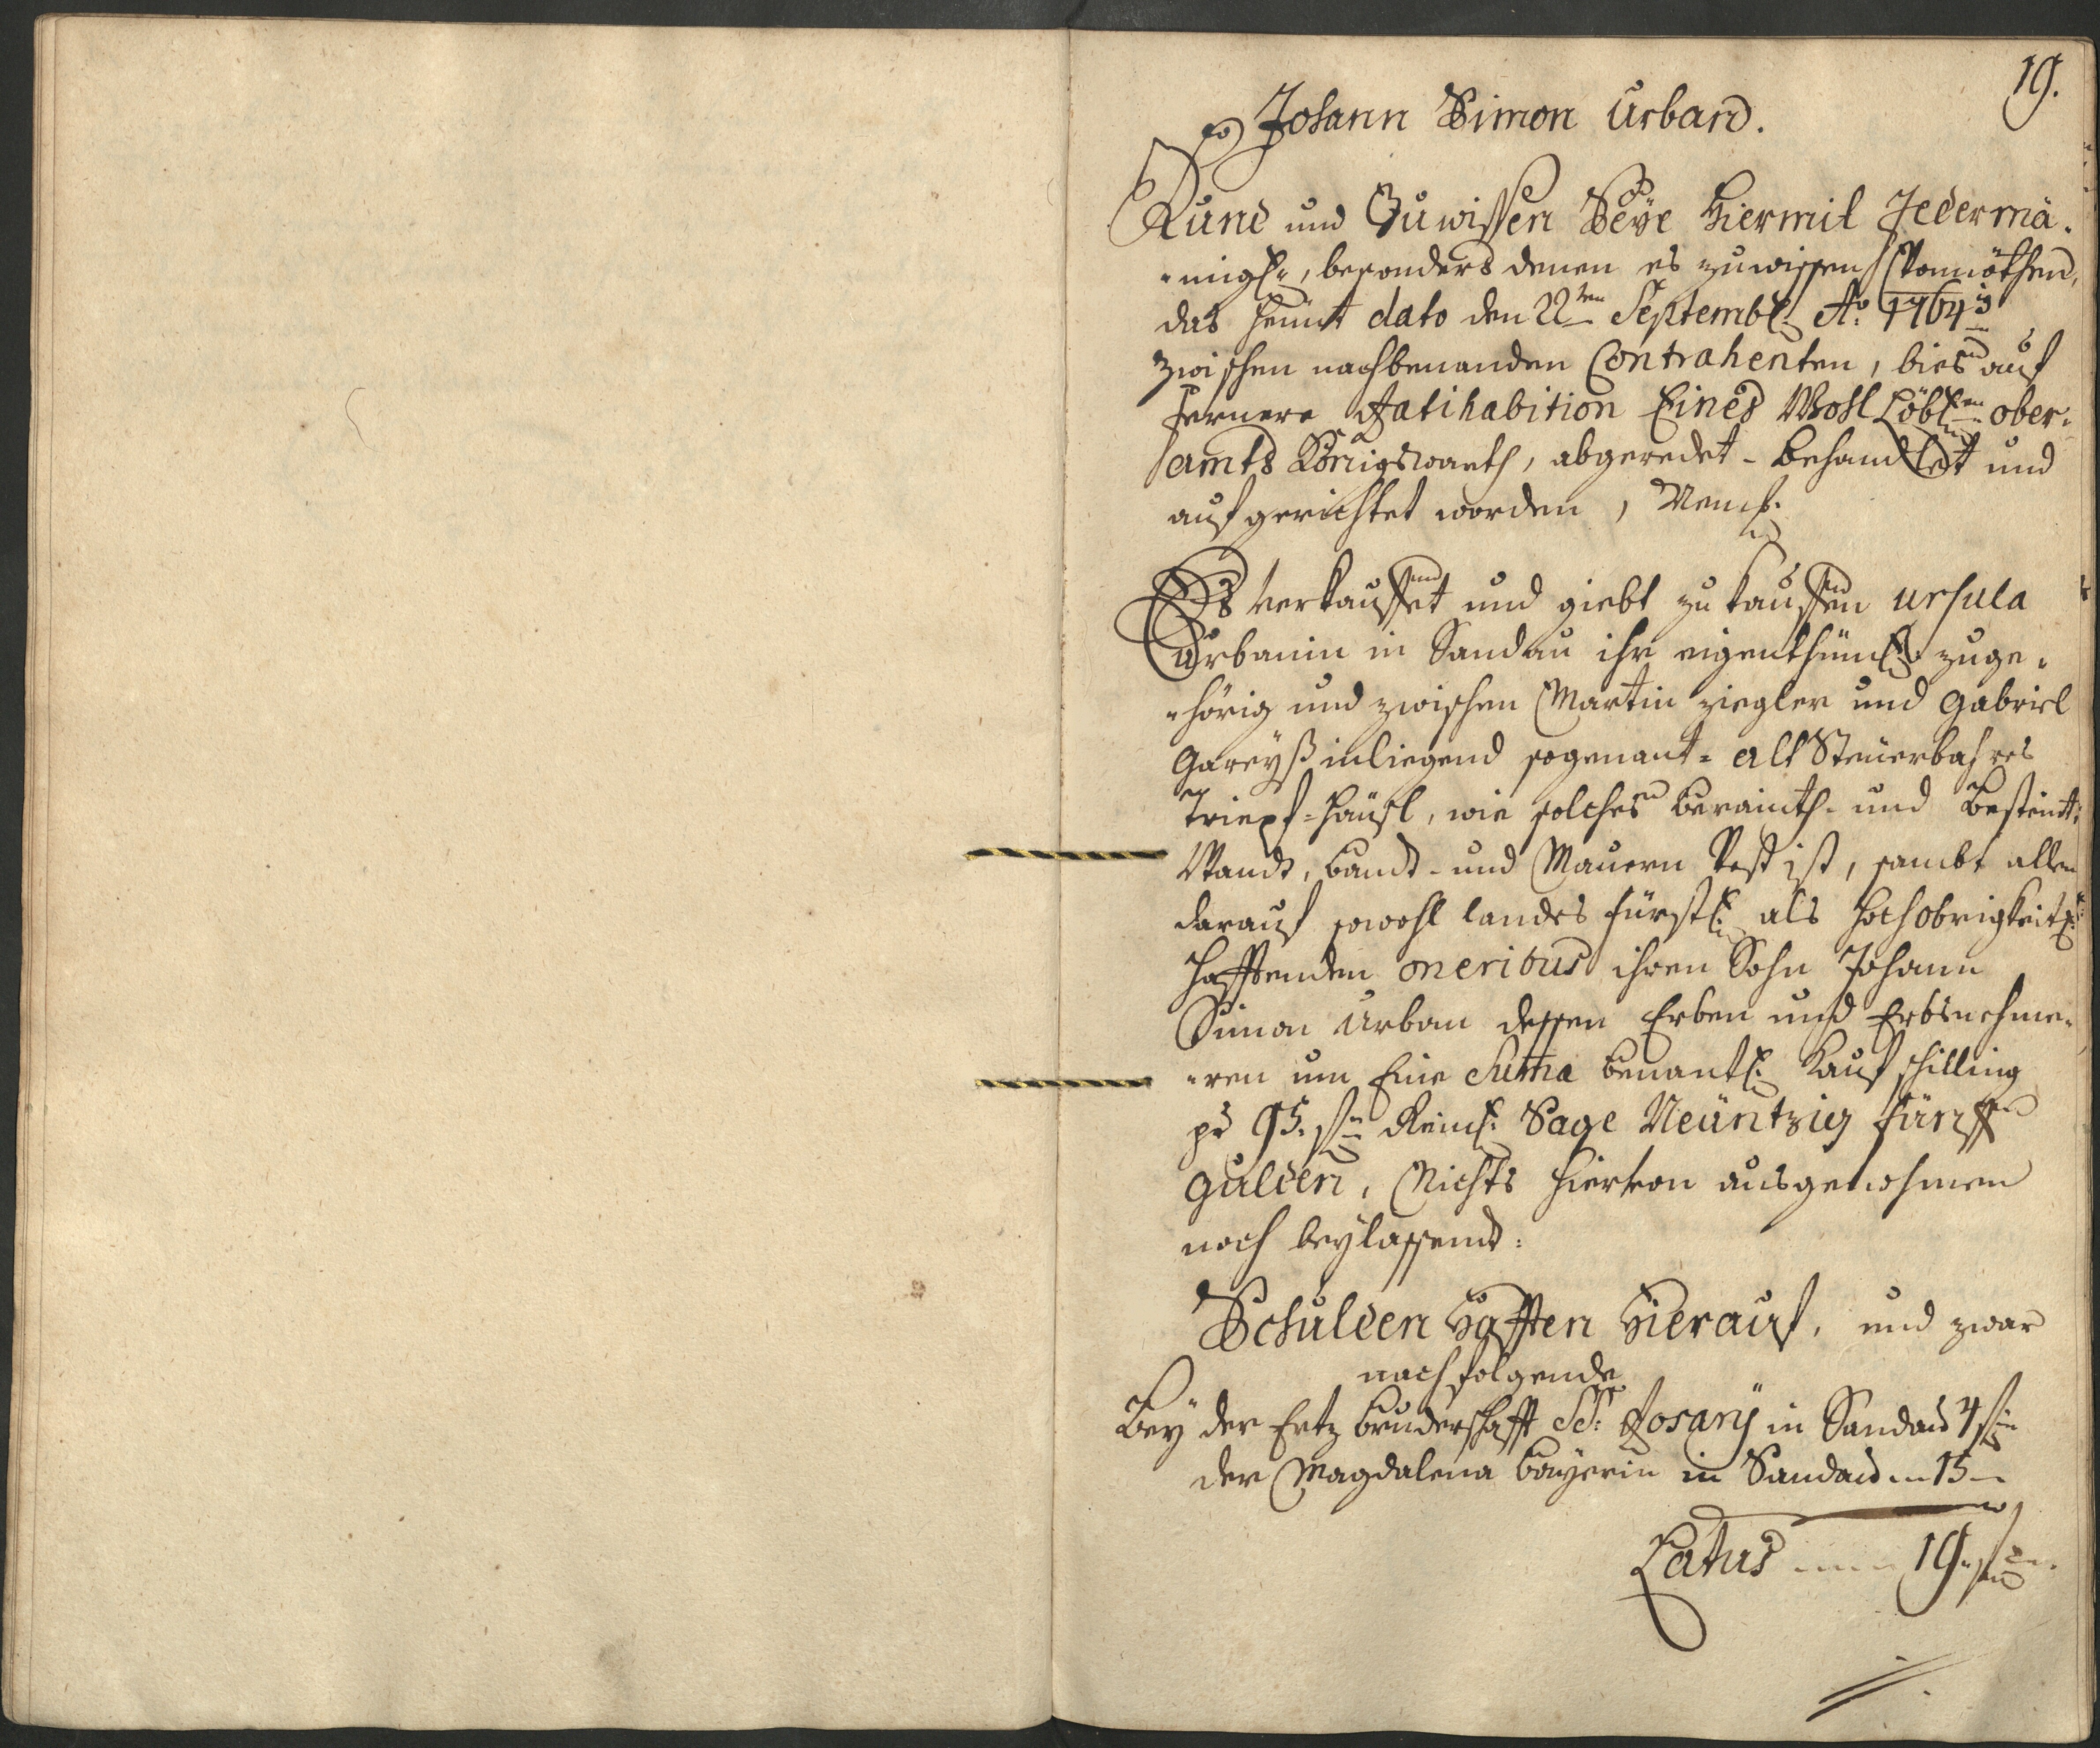 19.
Johann Simon Urban.
Kund und Zuwissen Seÿe Hiermit Jedermä-
-nigl:, besonders denen es zuwissen Vonnöthen,
das heünt dato den 22ten Septembl: Ao: 1764:
zwischen nachbenanden Contrahenten, bies auf
fernere Ratihabition Eines Wohl Löbl:en ober-
amts Königswarth, abgeredet- behandlet und
aufgerichtet worden, Neml:
Es verkauffet und giebt zu kauffen Ursula
Urbanin in Sandau ihr eigenthüml: zuge-
-hörig und zwischen Martin Ziegler und Gabriel
Gareÿß inliegend sogenant- alt Steuerbahres
Tripf-Häusl, wie solches berainth- und besteint:
Wandt, bandt- und Mauern Vest ist, sambt allen
darauf sowohl landes fürstl: als hochobrigkeitl:
hafftenden oneribus ihren Sohn Johann
Simon Urban dessen Erben und Erbsnehme-
-ren um Eine Suma benantl: Kaufschilling
pr 95. fl: Reinl: Sage Neüntzig fünff
gulden, Nichts hiervon ausgenohmen
noch beÿlassend:
Schulden Hafften Hierauf, und zwar
nachfolgende
Beÿ der Ertz bruderschafft SS: Rosarij in Sandau 4 fl:
der Magdalena baÿerin in Sandau 15 —
Latus 19. fl: